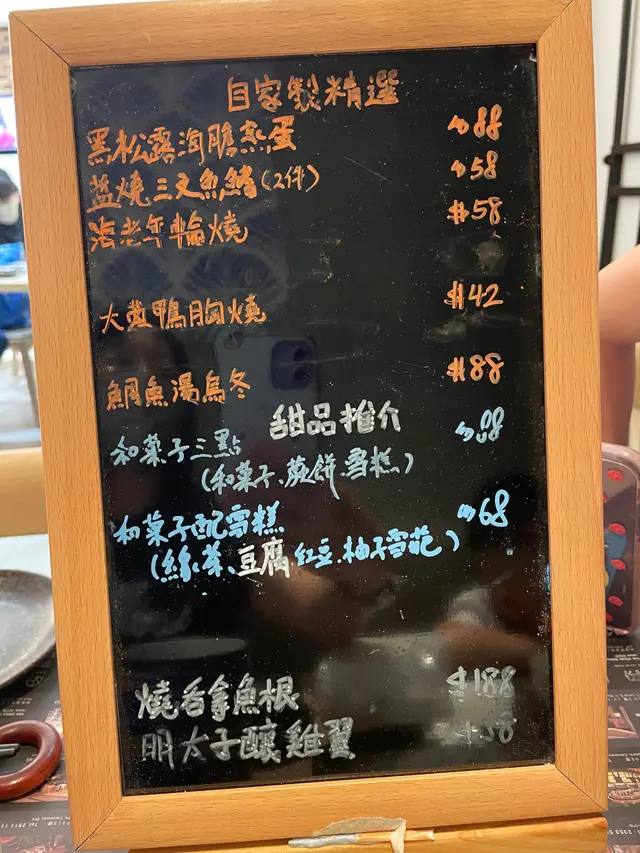 自家製精選
黑松露海膽蒸蛋 $88
盐燒三文魚鮫(2件) $58
海老年輪燒 $58
大葱鴨胸燒 $42
鯛魚湯烏冬 $88
甜品推介
和菓子三點 $88
(和菓子、蕨餅、雪糕)
和菓子配雪糕 $68
(綠茶、豆腐、紅豆、柚子雪葩)
燒吞拿魚根 $188
明太子釀雞翼